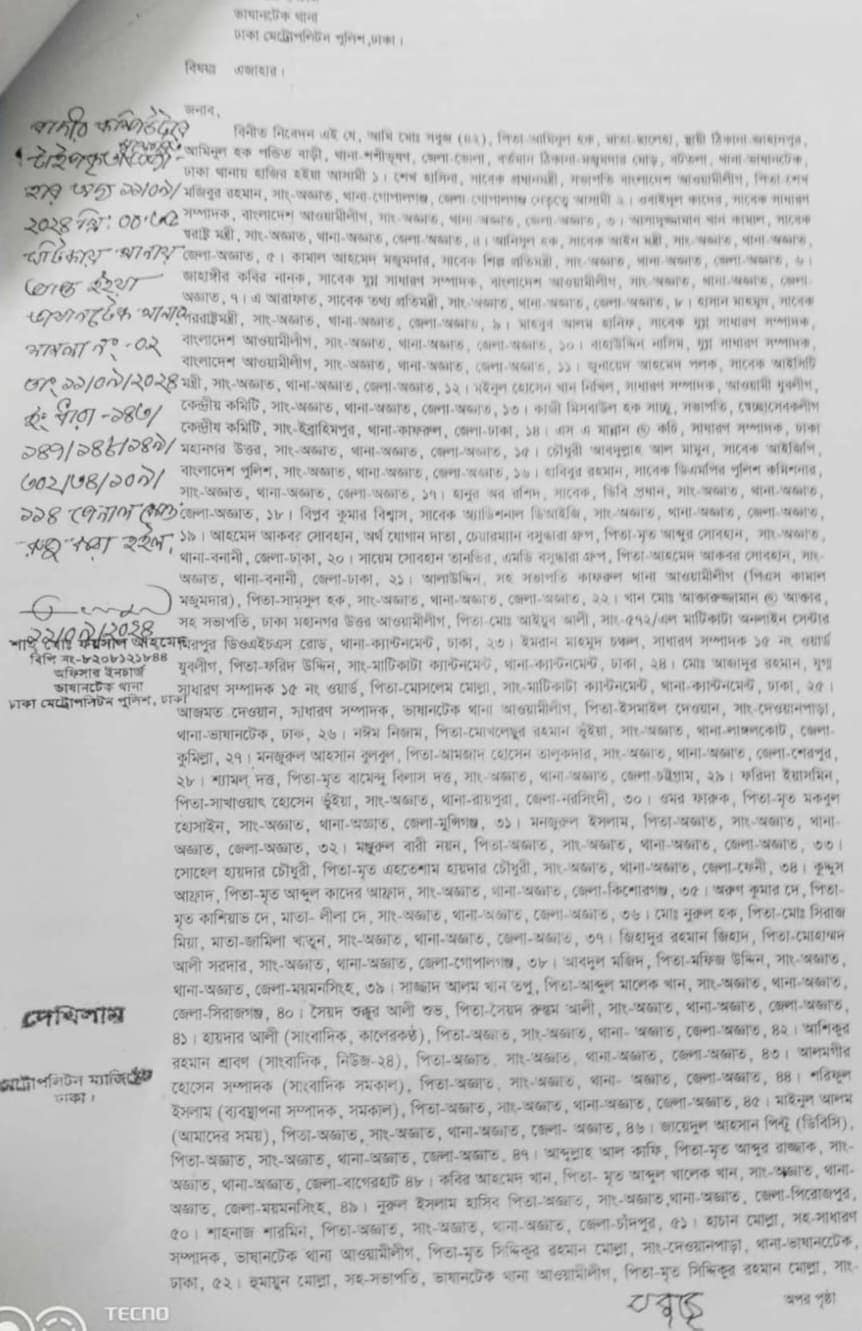 ভাষানটেক থানা
ঢাকা মেট্রোপলিটন পুলিশ,ঢাকা।
বিষয়ঃ এজাহার।
জনাব,
বিনীত নিবেদন এই যে, আমি মোঃ সবুজ (৪২), পিতা-আমিনুল হক, মাতা-ছালেহা, স্থায়ী ঠিকানা-জাহানপুর,
আমিনুল হক পন্ডিত বাড়ী, থানা-শশীভূষণ, জেলা-ভোলা, বর্তমান ঠিকানা-মজুমদার মোড়, বটতলা, থানা-ভাষানটেক,
ঢাকা থানায় হাজির হইয়া আসামী ১। শেখ হাসিনা, সাবেক প্রধানমন্ত্রী, সভাপতি বাংলাদেশ আওয়ামীলীগ, পিতা শেখ
মজিবুর রহমান, সাং-অজ্ঞাত, থানা-গোপালগঞ্জ, জেলা গোপালগঞ্জ নেতৃত্বে আসামী ২। ওবাইদুল কাদের, সাবেক সাধারণ
সম্পাদক, বাংলাদেশ আওয়ামীলীগ, সাং-অজ্ঞাত, থানা অজ্ঞাত, জেলা-অজ্ঞাত, ৩। আসাদুজ্জামান খান কামাল, সাবেক
স্বরাষ্ট্র মন্ত্রী, সাং-অজ্ঞাত, থানা-অজ্ঞাত, জেলা-অজ্ঞাত, ৪। আনিসুল হক, সাবেক আইন মন্ত্রী, সাং-অজ্ঞাত, থানা-অজ্ঞাত,
জেলা-অজ্ঞাত, ৫। কামাল আহমেদ মজুমদার, সাবেক শিল্প প্রতিমন্ত্রী, সাং-অজ্ঞাত, থানা-অজ্ঞাত, জেলা-অজ্ঞাত, ৬।
জাহাঙ্গীর কবির নানক, সাবেক যুগ্ন সাধারণ সম্পাদক, বাংলাদেশ আওয়ামীলীগ, সাং-অজ্ঞাত, থানা-অজ্ঞাত, জেলা-
অজ্ঞাত, ৭। এ আরাফাত, সাবেক তথ্য প্রতিমন্ত্রী, সাং-অজ্ঞাত, থানা-অজ্ঞাত, জেলা-অজ্ঞাত, ৮। হাসান মাহমুদ, সাবেক
পররাষ্ট্রমন্ত্রী, সাং-অজ্ঞাত, থানা-অজ্ঞাত, জেলা-অজ্ঞাত, ৯। মাহবুব আলম হানিফ, সাবেক যুগ্ন সাধারণ সম্পাদক,
বাংলাদেশ আওয়ামীলীগ, সাং-অজ্ঞাত, থানা-অজ্ঞাত, জেলা-অজ্ঞাত, ১০। বাহাউদ্দিন নাসিম, যুগ্ন সাধারণ সম্পাদক,
বাংলাদেশ আওয়ামীলীগ, সাং-অজ্ঞাত, থানা-অজ্ঞাত, জেলা-অজ্ঞাত, ১১। জুনায়েদ আহমেদ পলক, সাবেক আইসিটি
মন্ত্রী, সাং-অজ্ঞাত, থানা-অজ্ঞাত, জেলা-অজ্ঞাত, ১২। মইনুল হোসেন খান নিখিল, সাধারণ সম্পাদক, আওয়ামী যুবলীগ,
কেন্দ্রীয় কমিটি, সাং-অজ্ঞাত, থানা-অজ্ঞাত, জেলা-অজ্ঞাত, ১৩। কাজী মিসবাউল হক সাচ্চু, সভাপতি, স্বেচ্ছাসেবকলীগ
কেন্দ্রীয় কমিটি, সাং-ইব্রাহিমপুর, থানা-কাফরুল, জেলা-ঢাকা, ১৪। এস এ মান্নান @ কচি, সাধারণ সম্পাদক, ঢাকা
মহানগর উত্তর, সাং-অজ্ঞাত, থানা-অজ্ঞাত, জেলা-অজ্ঞাত, ১৫। চৌধুরী আবদুল্লাহ আল মামুন, সাবেক আইজিপি,
বাংলাদেশ পুলিশ, সাং-অজ্ঞাত, থানা-অজ্ঞাত, জেলা-অজ্ঞাত, ১৬। হাবিবুর রহমান, সাবেক ডিএমপির পুলিশ কমিশনার,
সাং-অজ্ঞাত, থানা-অজ্ঞাত, জেলা-অজ্ঞাত, ১৭। হারুন অর রশিদ, সাবেক, ডিবি প্রধান, সাং-অজ্ঞাত, থানা-অজ্ঞাত,
জেলা-অজ্ঞাত, ১৮। বিপ্লব কুমার বিশ্বাস, সাবেক অ্যাডিশনাল ডিআইজি, সাং-অজ্ঞাত, থানা-অজ্ঞাত, জেলা-অজ্ঞাত,
১৯। আহমেদ আকবর সোবহান, অর্থ যোগান দাতা, চেয়ারম্যান বসুন্ধারা গ্রুপ, পিতা-মৃত আব্দুর সোবহান, সাং-অজ্ঞাত,
থানা-বনানী, জেলা-ঢাকা, ২০। সায়েম সোবহান তানভির, এমডি বসুন্ধারা গ্রুপ, পিতা-আহমেদ আকবর সোবহান, সাং-
অজ্ঞাত, থানা-বনানী, জেলা-ঢাকা, ২১। আলাউদ্দিন, সহ সভাপতি কাফরুল থানা আওয়ামীলীগ (পিএস কামাল
মজুমদার), পিতা-সামসুল হক, সাং-অজ্ঞাত, থানা-অজ্ঞাত, জেলা-অজ্ঞাত, ২২। খান মোঃ আক্তারুজ্জামান @ আক্তার,
সহ সভাপতি, ঢাকা মহানগর উত্তর আওয়ামীলীগ, পিতা-মোঃ আইয়ুব আলী, সাং-৫৭২/এল মাটিকাটা অনলাইন সেন্টার
মিরপুর ডিওএইচএস রোড, থানা-ক্যান্টনমেন্ট, ঢাকা, ২৩। ইমরান মাহমুদ চঞ্চল, সাধারণ সম্পাদক ১৫ নং ওয়ার্ড
যুবলীগ, পিতা-ফরিদ উদ্দিন, সাং-মাটিকাটা ক্যান্টনমেন্ট, থানা-ক্যান্টনমেন্ট, ঢাকা, ২৪। মোঃ আজাদুর রহমান, যুগ্ম
সাধারণ সম্পাদক ১৫ নং ওয়ার্ড, পিতা-মোসলেম মোল্লা, সাং-মাটিকাটা ক্যান্টনমেন্ট, থানা-ক্যান্টনমেন্ট, ঢাকা, ২৫।
আজমত দেওয়ান, সাধারণ সম্পাদক, ভাষানটেক থানা আওয়ামীলীগ, পিতা-ইসমাইল দেওয়ান, সাং-দেওয়ানপাড়া,
থানা-ভাষানটেক, ঢাক, ২৬। নঈম নিজাম, পিতা-মোখলেছুর রহমান ভূঁইয়া, সাং-অজ্ঞাত, থানা-লাঙ্গলকোট, জেলা-
কুমিল্লা, ২৭। মনজুরুল আহসান বুলবুল, পিতা-আমজাদ হোসেন তালুকদার, সাং-অজ্ঞাত, থানা-অজ্ঞাত, জেলা-শেরপুর,
২৮। শ্যামল দত্ত, পিতা-মৃত বামেন্দু বিলাস দত্ত, সাং-অজ্ঞাত, থানা-অজ্ঞাত, জেলা-চট্টগ্রাম, ২৯। ফরিদা ইয়াসমিন,
পিতা-সাখাওয়াৎ হোসেন ভূঁইয়া, সাং-অজ্ঞাত, থানা-রায়পুরা, জেলা-নরসিংদী, ৩০। ওমর ফারুক, পিতা-মৃত মকবুল
হোসাইন, সাং-অজ্ঞাত, থানা-অজ্ঞাত, জেলা-মুন্সিগঞ্জ, ৩১। মনজুরুল ইসলাম, পিতা-অজ্ঞাত, সাং-অজ্ঞাত, থানা-
অজ্ঞাত, জেলা-অজ্ঞাত, ৩২। মঞ্জুরুল বারী নয়ন, পিতা-অজ্ঞাত, সাং-অজ্ঞাত, থানা-অজ্ঞাত, জেলা-অজ্ঞাত, ৩৩।
সোহেল হায়দার চৌধুরী, পিতা-মৃত এহতেশাম হায়দার চৌধুরী, সাং-অজ্ঞাত, থানা-অজ্ঞাত, জেলা-ফেনী, ৩৪। কুদ্দুস
আফ্রাদ, পিতা-মৃত আব্দুল কাদের আফ্রাদ, সাং-অজ্ঞাত, থানা-অজ্ঞাত, জেলা-কিশোরগঞ্জ, ৩৫। অরুণ কুমার দে, পিতা-
মৃত কাশিয়াভ দে, মাতা- লীলা দে, সাং-অজ্ঞাত, থানা-অজ্ঞাত, জেলা-অজ্ঞাত, ৩৬। মোঃ নুরুল হক, পিতা-মোঃ সিরাজ
মিয়া, মাতা-জামিলা খাতুন, সাং-অজ্ঞাত, থানা-অজ্ঞাত, জেলা-অজ্ঞাত, ৩৭। জিহাদুর রহমান জিহাদ, পিতা-মোহাম্মদ
আলী সরদার, সাং-অজ্ঞাত, থানা-অজ্ঞাত, জেলা-গোপালগঞ্জ, ৩৮। আবদুল মজিদ, পিতা-মফিজ উদ্দিন, সাং-অজ্ঞাত,
থানা-অজ্ঞাত, জেলা-ময়মনসিংহ, ৩৯। সাজ্জাদ আলম খান তপু, পিতা-আব্দুল মালেক খান, সাং-অজ্ঞাত, থানা-অজ্ঞাত,
জেলা-সিরাজগঞ্জ, ৪০। সৈয়দ শুকুর আলী শুভ, পিতা-সৈয়দ রুস্তম আলী, সাং-অজ্ঞাত, থানা-অজ্ঞাত, জেলা-অজ্ঞাত,
৪১। হায়দার আলী (সাংবাদিক, কালেরকন্ঠ), পিতা-অজ্ঞাত, সাং-অজ্ঞাত, থানা- অজ্ঞাত, জেলা-অজ্ঞাত, ৪২। আশিকুর
রহমান শ্রাবণ (সাংবাদিক, নিউজ-২৪), পিতা-অজ্ঞাত, সাং-অজ্ঞাত, থানা-অজ্ঞাত, জেলা-অজ্ঞাত, ৪৩। আলমগীর
হোসেন সম্পাদক (সাংবাদিক সমকাল), পিতা-অজ্ঞাত, সাং-অজ্ঞাত, থানা- অজ্ঞাত, জেলা-অজ্ঞাত, ৪৪। শরিফুল
ইসলাম (ব্যবস্থাপনা সম্পাদক, সমকাল), পিতা-অজ্ঞাত, সাং-অজ্ঞাত, থানা-অজ্ঞাত, জেলা-অজ্ঞাত, ৪৫। মাইনুল আলম
(আমাদের সময়), পিতা-অজ্ঞাত, সাং-অজ্ঞাত, থানা-অজ্ঞাত, জেলা- অজ্ঞাত, ৪৬। জায়েদুল আহসান পিন্টু (ডিবিসি),
পিতা-অজ্ঞাত, সাং-অজ্ঞাত, থানা-অজ্ঞাত, জেলা-অজ্ঞাত, ৪৭। আব্দুল্লাহ আল কাফি, পিতা-মৃত আব্দুর রাজ্জাক, সাং-
অজ্ঞাত, থানা-অজ্ঞাত, জেলা-বাগেরহাট ৪৮। কবির আহমেদ খান, পিতা- মৃত আব্দুল খালেক খান, সাং-অজ্ঞাত, থানা-
অজ্ঞাত, জেলা-ময়মনসিংহ, ৪৯। নুরুল ইসলাম হাসিব পিতা-অজ্ঞাত, সাং-অজ্ঞাত,থানা-অজ্ঞাত, জেলা-পিরোজপুর,
৫০। শাহনাজ শারমিন, পিতা-অজ্ঞাত, সাং-অজ্ঞাত, থানা-অজ্ঞাত, জেলা-চাঁদপুর, ৫১। হাচান মোল্লা, সহ-সাধারণ
সম্পাদক, ভাষানটেক থানা আওয়ামীলীগ, পিতা-মৃত সিদ্দিকুর রহমান মোল্লা, সাং-দেওয়ানপাড়া, থানা-ভাষানটেক,
ঢাকা, ৫২। হুমায়ুন মোল্লা, সহ-সভাপতি, ভাষানটেক থানা আওয়ামীলীগ, পিতা-মৃত সিদ্দিকুর রহমান মোল্লা, সাং-
অপর পৃষ্ঠা
বাদীর কম্পিউটারে
টাইপকৃত
২০২৪ খ্রিঃ
ঘটিকায় থানায়
প্রাপ্ত হইয়া
ভাষানটেক থানার
মামলা নং-০২
তাং ১১/০৯/২০২৪
ধারা-১৪৩/
১৪৭/১৪৮/১৪৯/
৩০২/৩৪/১০৯/
১১৪ পেনাল কোড
রুজু করা হইল,
শাহ্ মোঃ ফয়সাল আহমেদ
বিপি নং-৮২০৮১২১৮৪৪
অফিসার ইনচার্জ
ভাষানটেক থানা
ঢাকা মেট্রোপলিটন পুলিশ, ঢাকা
দেখিলাম
মেট্রোপলিটন ম্যাজিস্ট্রেট
ঢাকা।
TECNO